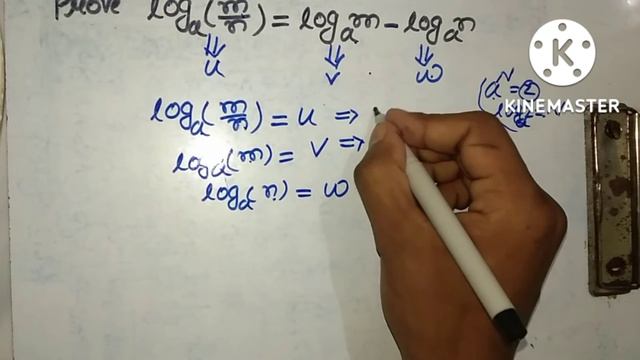 Prove logₐ(m/n) = logₐm - logₐn
⇓ ⇓ ⇓
u v w
logₐ(m/n) = u ⇒
logₐ(m) = v ⇒
logₐ(n) = w
K
KINEMASTER